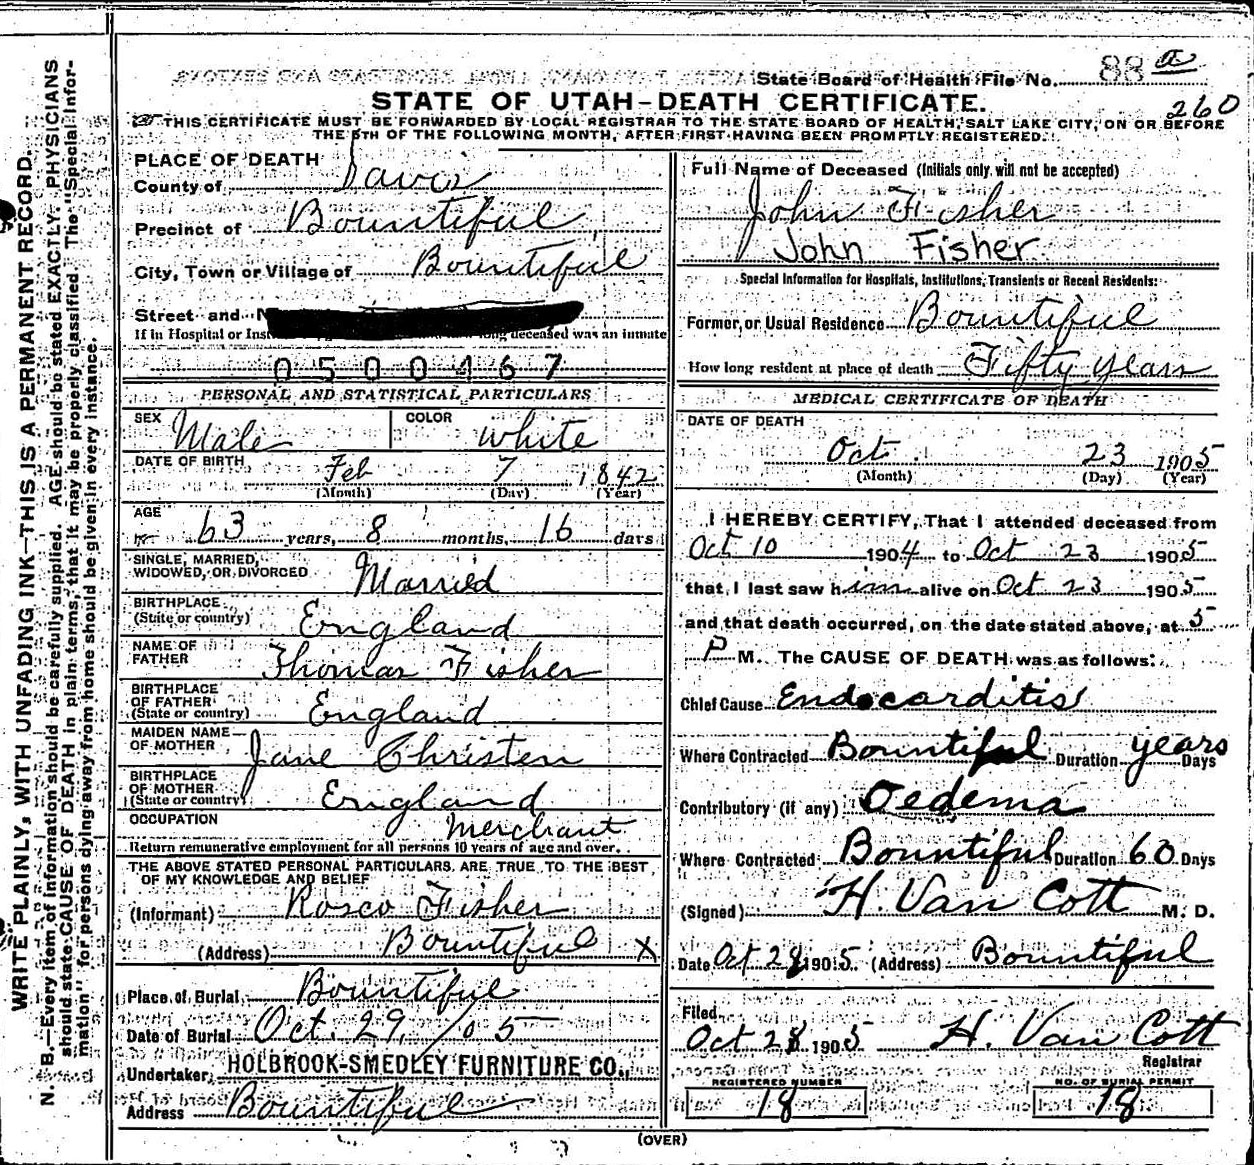 WRITE PLAINLY, WITH UNFADING INK—THIS IS A PERMANENT RECORD.
N. B.—Every item of information should be carefully supplied. AGE should be stated EXACTLY. PHYSICIANS
should state CAUSE OF DEATH in plain terms, that it may be properly classified. The "Special Infor-
mation" for persons dying away from home should be given in every instance.
State Board of Health File No. 88 a
260
STATE OF UTAH—DEATH CERTIFICATE.
THIS CERTIFICATE MUST BE FORWARDED BY LOCAL REGISTRAR TO THE STATE BOARD OF HEALTH, SALT LAKE CITY, ON OR BEFORE
THE 5TH OF THE FOLLOWING MONTH, AFTER FIRST HAVING BEEN PROMPTLY REGISTERED.
PLACE OF DEATH
County of Davis
Precinct of Bountiful
City, Town or Village of Bountiful
Street and
If in Hospital or deceased was an inmate
0500467
PERSONAL AND STATISTICAL PARTICULARS
SEX Male COLOR White
DATE OF BIRTH Feb 7 1842
(Month) (Day) (Year)
AGE 63 years, 8 months, 16 days
SINGLE, MARRIED,
WIDOWED, OR DIVORCED Married
BIRTHPLACE
(State or country) England
NAME OF
FATHER Thomas Fisher
BIRTHPLACE
OF FATHER
(State or country) England
MAIDEN NAME
OF MOTHER Jane Christen
BIRTHPLACE
OF MOTHER
(State or country) England
OCCUPATION Merchant
Return remunerative employment for all persons 10 years of age and over.
THE ABOVE STATED PERSONAL PARTICULARS ARE TRUE TO THE BEST
OF MY KNOWLEDGE AND BELIEF
(Informant) Rosco Fisher
(Address) Bountiful X
Place of Burial Bountiful
Date of Burial Oct. 29, /05
Undertaker HOLBROOK-SMEDLEY FURNITURE CO.,
Address Bountiful
Full Name of Deceased (Initials only will not be accepted)
John Fisher
John Fisher
Special Information for Hospitals, Institutions, Transients or Recent Residents:
Former or Usual Residence Bountiful
How long resident at place of death Fifty years
MEDICAL CERTIFICATE OF DEATH
DATE OF DEATH
Oct. 23 1905
(Month) (Day) (Year)
I HEREBY CERTIFY, That I attended deceased from
Oct 10 1904 to Oct 23 1905
that I last saw him alive on Oct 23 1905
and that death occurred, on the date stated above, at 5
P M. The CAUSE OF DEATH was as follows:
Chief Cause Endocarditis
Where Contracted Bountiful Duration years Days
Contributory (if any) Oedema
Where Contracted Bountiful Duration 60 Days
(Signed) H. Van Cott M. D.
Date Oct 28 1905 (Address) Bountiful
Filed
Oct 28 1905 H. Van Cott
Registrar
REGISTERED NUMBER
18
NO. OF BURIAL PERMIT
18
(OVER)